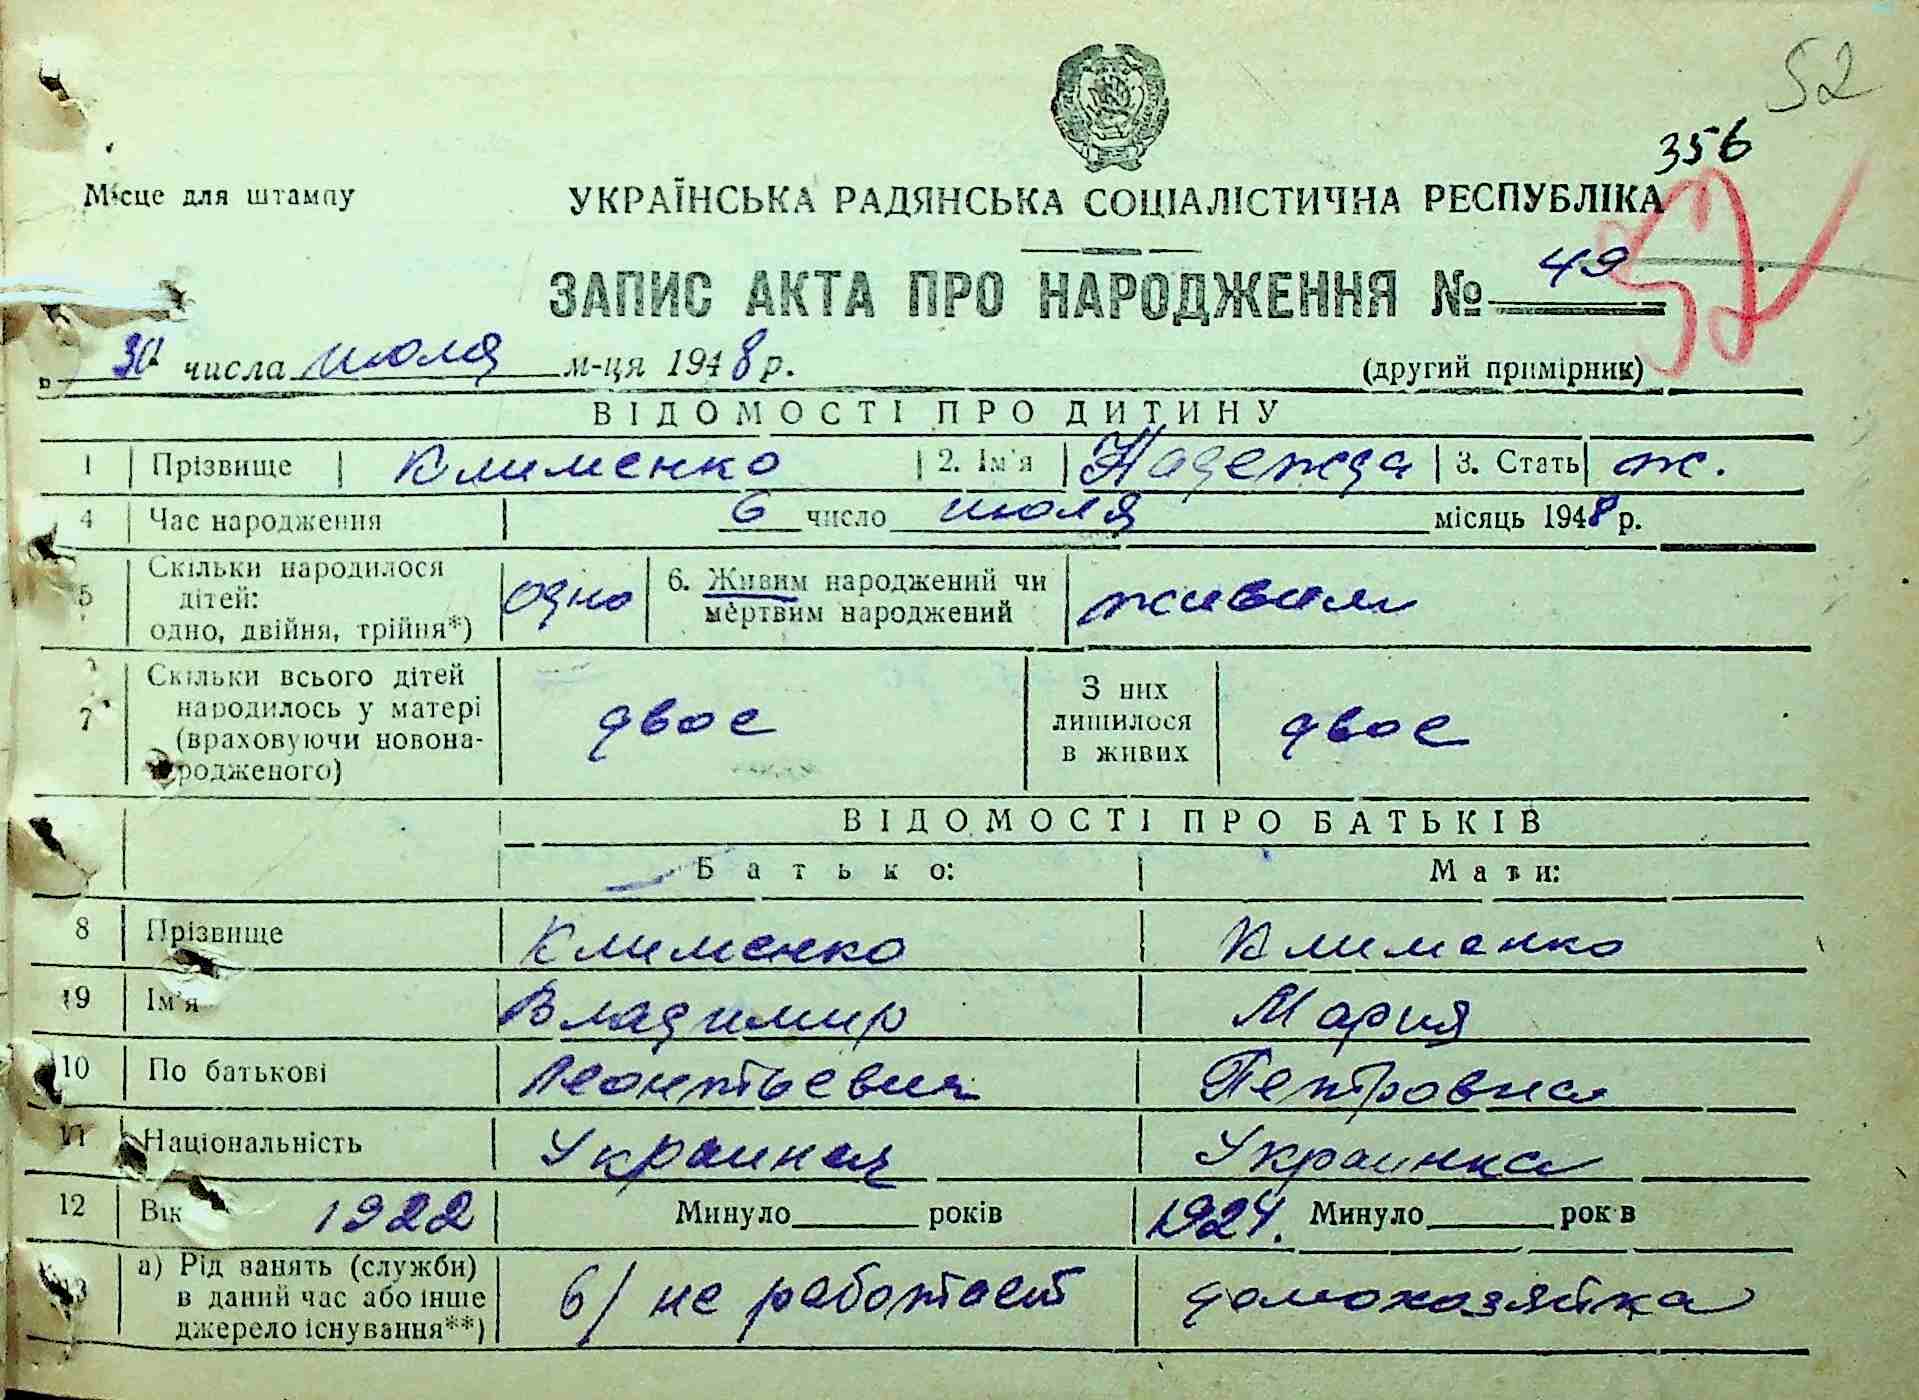 52
356
Місце для штампу
УКРАЇНСЬКА РАДЯНСЬКА СОЦІАЛІСТИЧНА РЕСПУБЛІКА
ЗАПИС АКТА ПРО НАРОДЖЕННЯ № 49
52
„ 30 числа июля м-ця 1948 р.
(другий примірник)
ВІДОМОСТІ ПРО ДИТИНУ
1 Прізвище Клименко 2. Ім'я Надежда 3. Стать ж.
4 Час народження 6 число июля місяць 1948 р.
5 Скільки народилося
дітей:
одно, двійня, трійня*)
одно
6. Живим народжений чи
мертвим народжений
живым
7 Скільки всього дітей
народилось у матері
(враховуючи новона-
родженого)
двое
З них
лишилося
в живих
двое
ВІДОМОСТІ ПРО БАТЬКІВ
Батько: Мати:
8 Прізвище Клименко Клименко
9 Ім'я Владимир Мария
10 По батькові Леонтьевич Петровна
11 Національність Украинец Украинка
12 Вік 1922 Минуло років 1924. Минуло рок в
13 а) Рід занять (служби)
в даний час або інше
джерело існування**)
б/ не работает домохозяйка